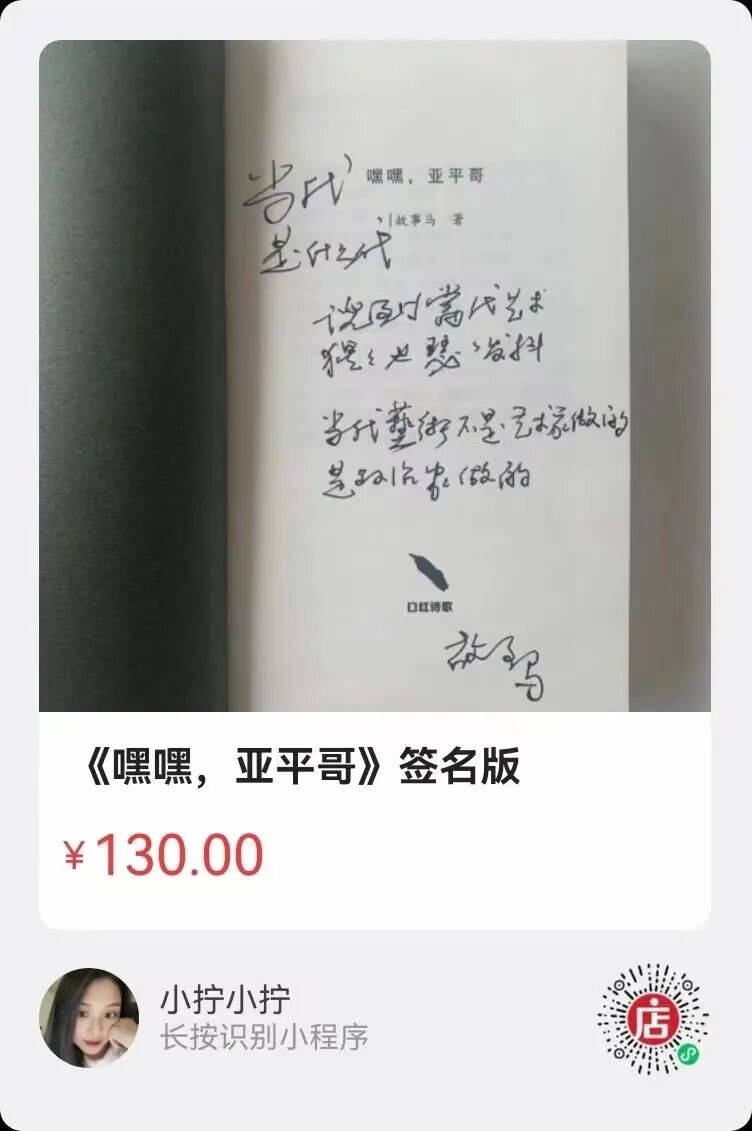 嘿嘿，亚平哥
故事马 著
当代
是什么代
当代艺术
当代藝術不是艺术家做的
是政治家做的
口红诗歌
故事马
《嘿嘿，亚平哥》签名版
¥130.00
小拧小拧
长按识别小程序
店